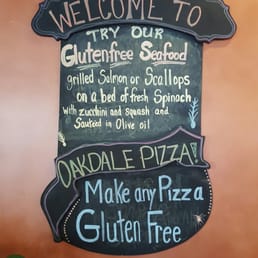 WELCOME TO
TRY OUR
Glutenfree Seafood
grilled Salmon or Scallops
on a bed of fresh Spinach
with zucchini and squash and
Sauteed in Olive oil
OAKDALE PIZZA!
Make any Pizza
Gluten Free